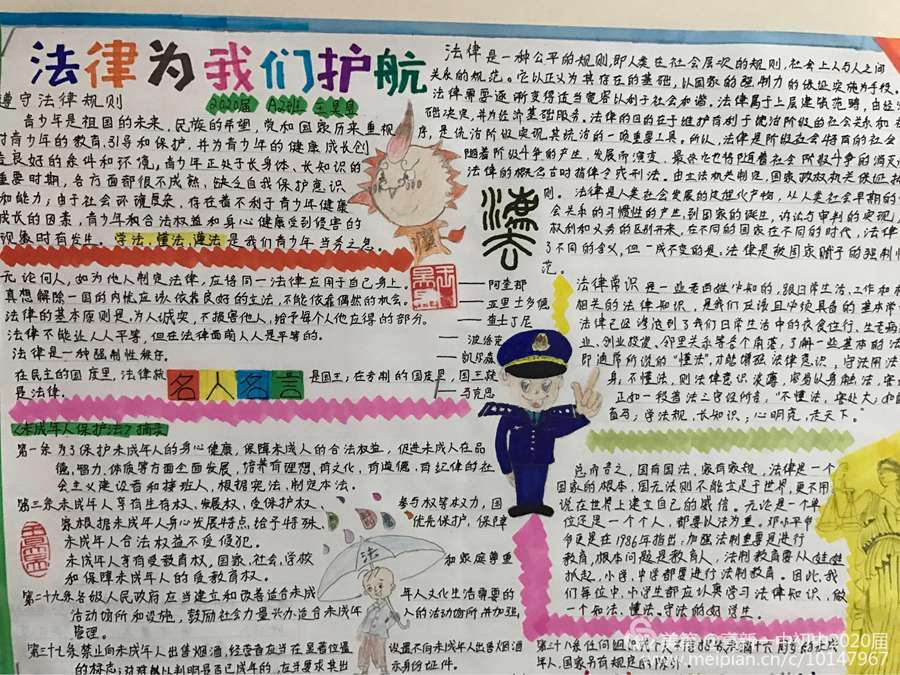 法律为我们护航
2020届
遵守法律规则
青少年是祖国的未来，民族的希望，党和国家历来重视
对青少年的教育、引导和保护，并为青少年的健康成长创
造良好的条件和环境。青少年正处于长身体、长知识的
重要时期，各方面都很不成熟，缺乏自我保护意识
和能力；由于社会环境复杂，存在着不利于青少年健康
成长的因素，青少年和合法权益和身心健康受到侵害的
现象时有发生。学法，懂法，遵法是我们青少年当务之急。
无论何人，如为他人制定法律，应将同一法律应用于自己身上。
——阿奎那
真想解除一国的内忧应该依靠良好的立法，不能依靠偶然的机会。
——亚里士多德
法律的基本原则是：为人诚实，不损害他人，给予每个人他应得的部分。
——查士丁尼
法律不能让人人平等，但在法律面前人人是平等的。
——波洛克
法律是一种强制性秩序。
——凯尔森
在民主的国度里，法律就是国王；在专制的国度里，国王就
是法律。
——马克思
名人名言
《未成年人保护法》摘录
第一条为了保护未成年人的身心健康，保障未成人的合法权益，促进未成人在品
德、智力、体质等方面全面发展，培养有理想、有文化、有道德、有纪律的社
会主义建设者和接班人，根据宪法，制定本法。
第三条未成年人享有生存权、发展权、受保护权、参与权等权力，国
家根据未成年人身心发展特点给予特殊、优先保护，保障
未成年人合法权益不受侵犯。
未成年人享有受教育权，国家、社会、学校和家庭尊重
和保障未成年人的受教育权。
第二十九条各级人民政府应当建立和改善适合未成年人文化生活需要的
活动场所和设施，鼓励社会力量兴办适合未成年人的活动场所并加强
管理。
第三十七条禁止向未成年人出售烟酒，经营者应当在显著位置设置不向未成年人出售烟酒
的标志；对难以判明是否已成年的，应当要求其出示身份证件。
法
法律是一种公平的规则，即人类在社会层次的规则，社会上人与人之间
关系的规范。它以正义为其存在的基础，以国家的强制力的保证实施为手段。
法律需要逐渐变得适当宽容以利于社会和谐。法律属于上层建筑范畴，由经济
础决定，并为经济基础服务。法律的目的在于维护有利于统治阶级的社会关系和
序，是统治阶级实现其统治的一项重要工具。所以，法律是阶级社会特有的社会
随着阶级斗争的产生、发展而演变，最终也将随着社会阶级斗争的消灭
法律的概念古时指律令或刑法。由立法机关制定，国家政权机关保证执
则。法律是人类社会发展的文明化产物，从人类社会早期的
会关系的习惯性的产生，到国家的诞生，诉讼与审判的实现，
权利和义务的区别开来，在不同的国家在不同的时代，法律
了不同的含义，但一成不变的是：法律是被国家赋予的强制
范。
法律常识是一些老百姓必知的，跟日常生活、工作和
相关的法律知识，是我们应该且必须具备的基本常
法律已经渗透到了我们日常生活中的衣食住行、生老病
业、创业投资、邻里关系等各个角落，了解一些基本的法
即通常所说的“懂法”，才能增强法律意识，守法用法
身。不懂法，则法律意识淡薄，容易以身触法，害
正如一段普法三字经所言，“不懂法，害处大；
盲马；学法规，长知识；心明亮，走天下。”
总而言之，国有国法，家有家规，法律是一个
国家的根本，国无法则不能立足于世界，更不用
说在世界上建立自己的威信。无论是一个单
位还是一个个人，都要以法为重。邓小平
早在1986年指出：加强法制重要是进行
教育，根本问题是教育人，法制教育要从娃娃
抓起，小学、中学都要进行法制教育。因此，我
们每位中、小学生都应认真学习法律知识，做
一个知法、懂法、守法的好学生。
美篇
www.meipian.cn/c/10147967